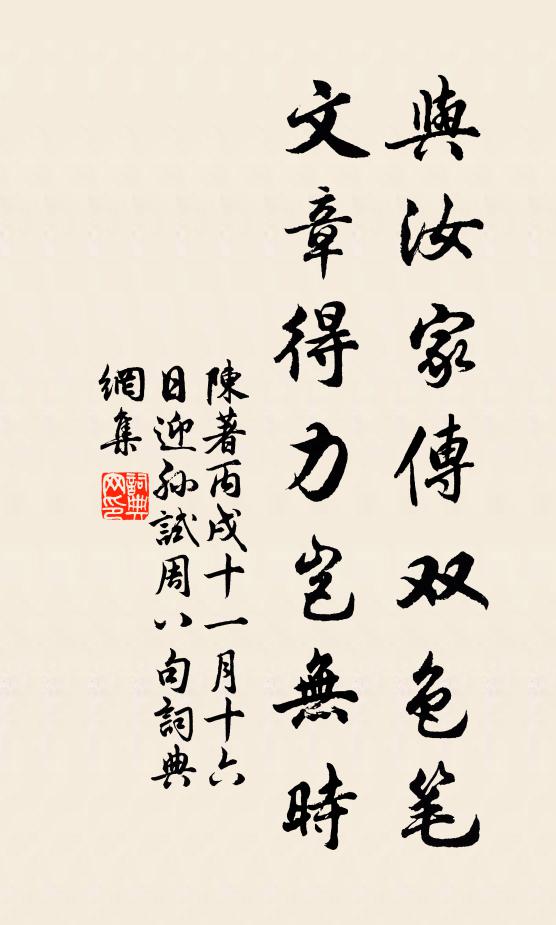 與汝家傳双色笔
文章得力豈無時
陳著丙戌十一月十六
日迎孙試周八句詞典
網集
詞典
网印